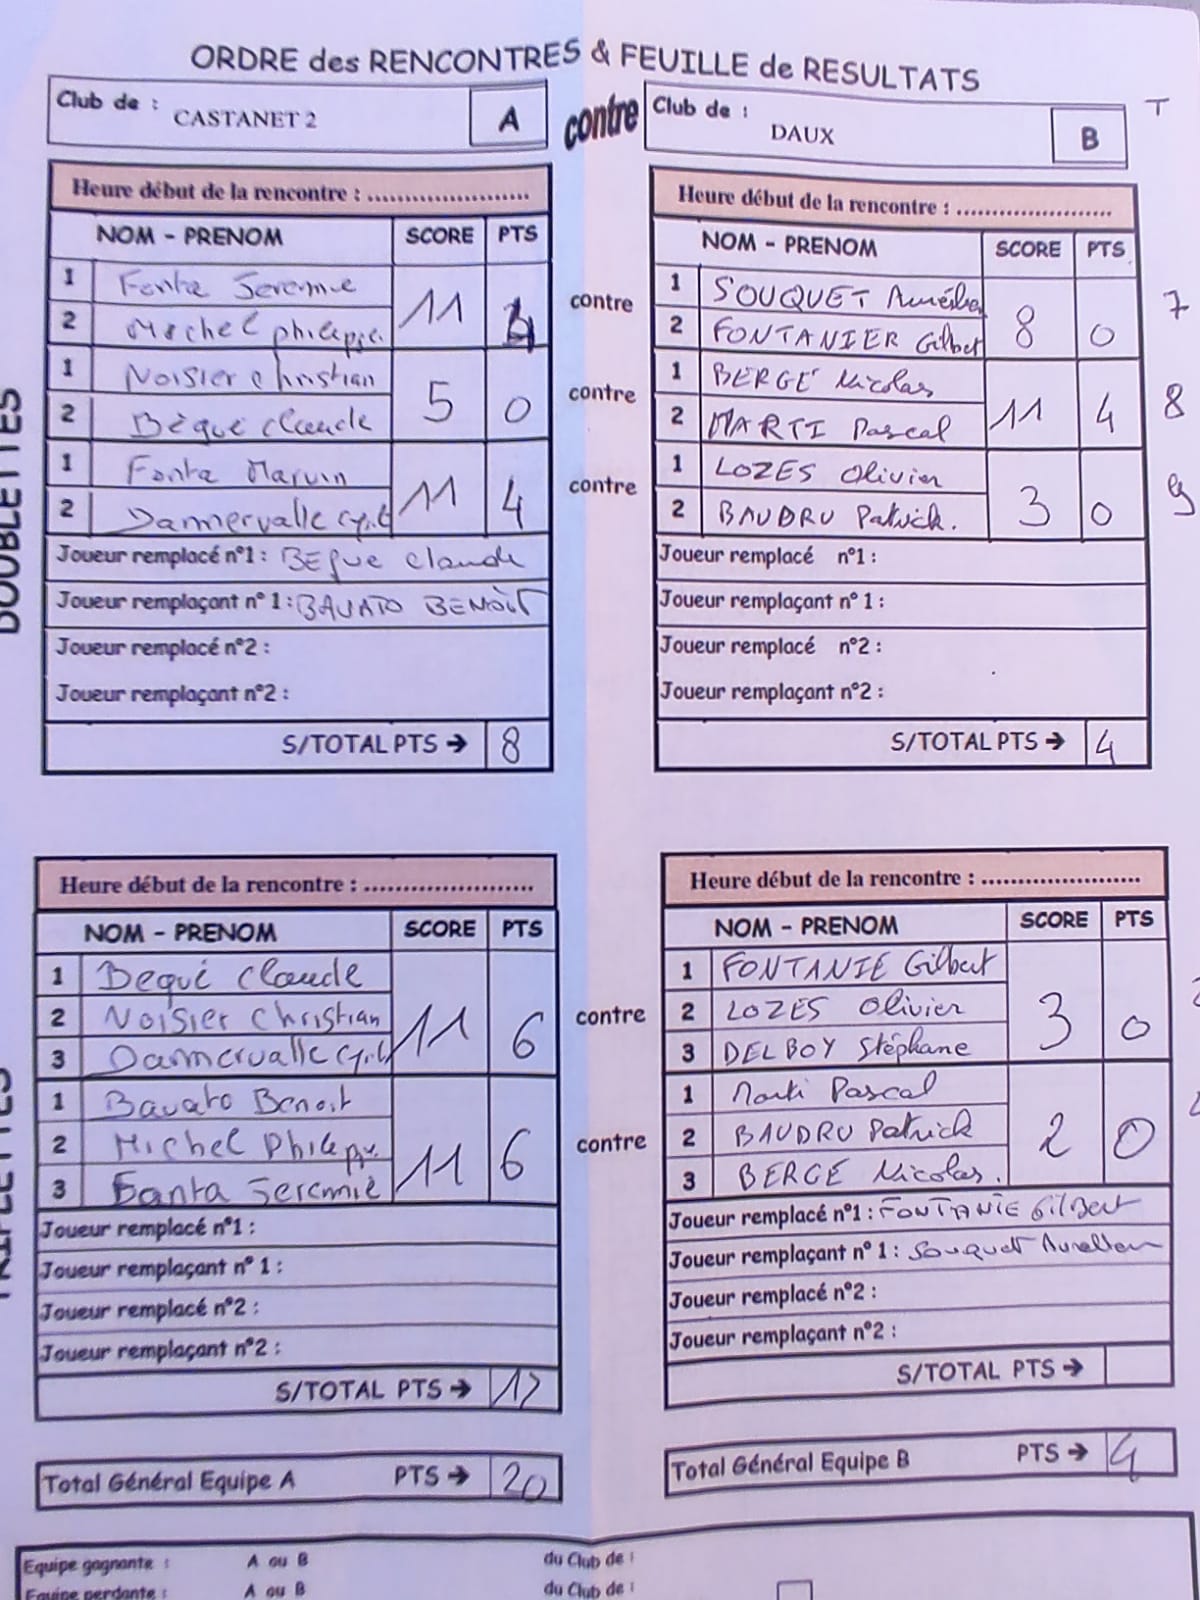 ORDRE des RENCONTRES & FEUILLE de RESULTATS
Club de : CASTANET 2 A
contre
Club de : DAUX B
T
DOUBLETTES
Heure début de la rencontre : ......................
NOM - PRENOM SCORE PTS
1 Fonta Jeremie
2 Michel philippe
11 4
1 Noisier Christian
2 Bèque Claude
5 0
1 Fonta Marvin
2 Dannervalle Cyril
11 4
Joueur remplacé n°1 : BEque Claude
Joueur remplaçant n° 1 : BAVATO BENOÎT
Joueur remplacé n°2 :
Joueur remplaçant n°2 :
S/TOTAL PTS → 8
contre
contre
contre
Heure début de la rencontre : ......................
NOM - PRENOM SCORE PTS
1 SOUQUET Aurélien
2 FONTANIER Gilbert
8 0
7
1 BERGÉ Nicolas
2 MARTI Pascal
11 4
8
1 LOZES Olivier
2 BAUDRU Patrick.
3 0
9
Joueur remplacé n°1 :
Joueur remplaçant n° 1 :
Joueur remplacé n°2 :
Joueur remplaçant n°2 :
S/TOTAL PTS → 4
TRIPLETTES
Heure début de la rencontre : ......................
NOM - PRENOM SCORE PTS
1 Bequé Claude
2 Noisier Christian
3 Dannervalle Cyril
11 6
1 Bavato Benoit
2 Michel Philippe
3 Fanta Jeremie
11 6
Joueur remplacé n°1 :
Joueur remplaçant n° 1 :
Joueur remplacé n°2 :
Joueur remplaçant n°2 :
S/TOTAL PTS → 12
contre
contre
Heure début de la rencontre : ......................
NOM - PRENOM SCORE PTS
1 FONTANIE Gilbert
2 LOZES Olivier
3 DELBOY Stéphane
3 0
1 Marti Pascal
2 BAUDRU Patrick
3 BERGE Nicolas.
2 0
Joueur remplacé n°1 : FONTANIE Gilbert
Joueur remplaçant n° 1 : Souquet Aurelien
Joueur remplacé n°2 :
Joueur remplaçant n°2 :
S/TOTAL PTS →
Total Général Equipe A PTS → 20
Total Général Equipe B PTS → 4
Equipe gagnante : A ou B du Club de :
Equipe perdante : A ou B du Club de :